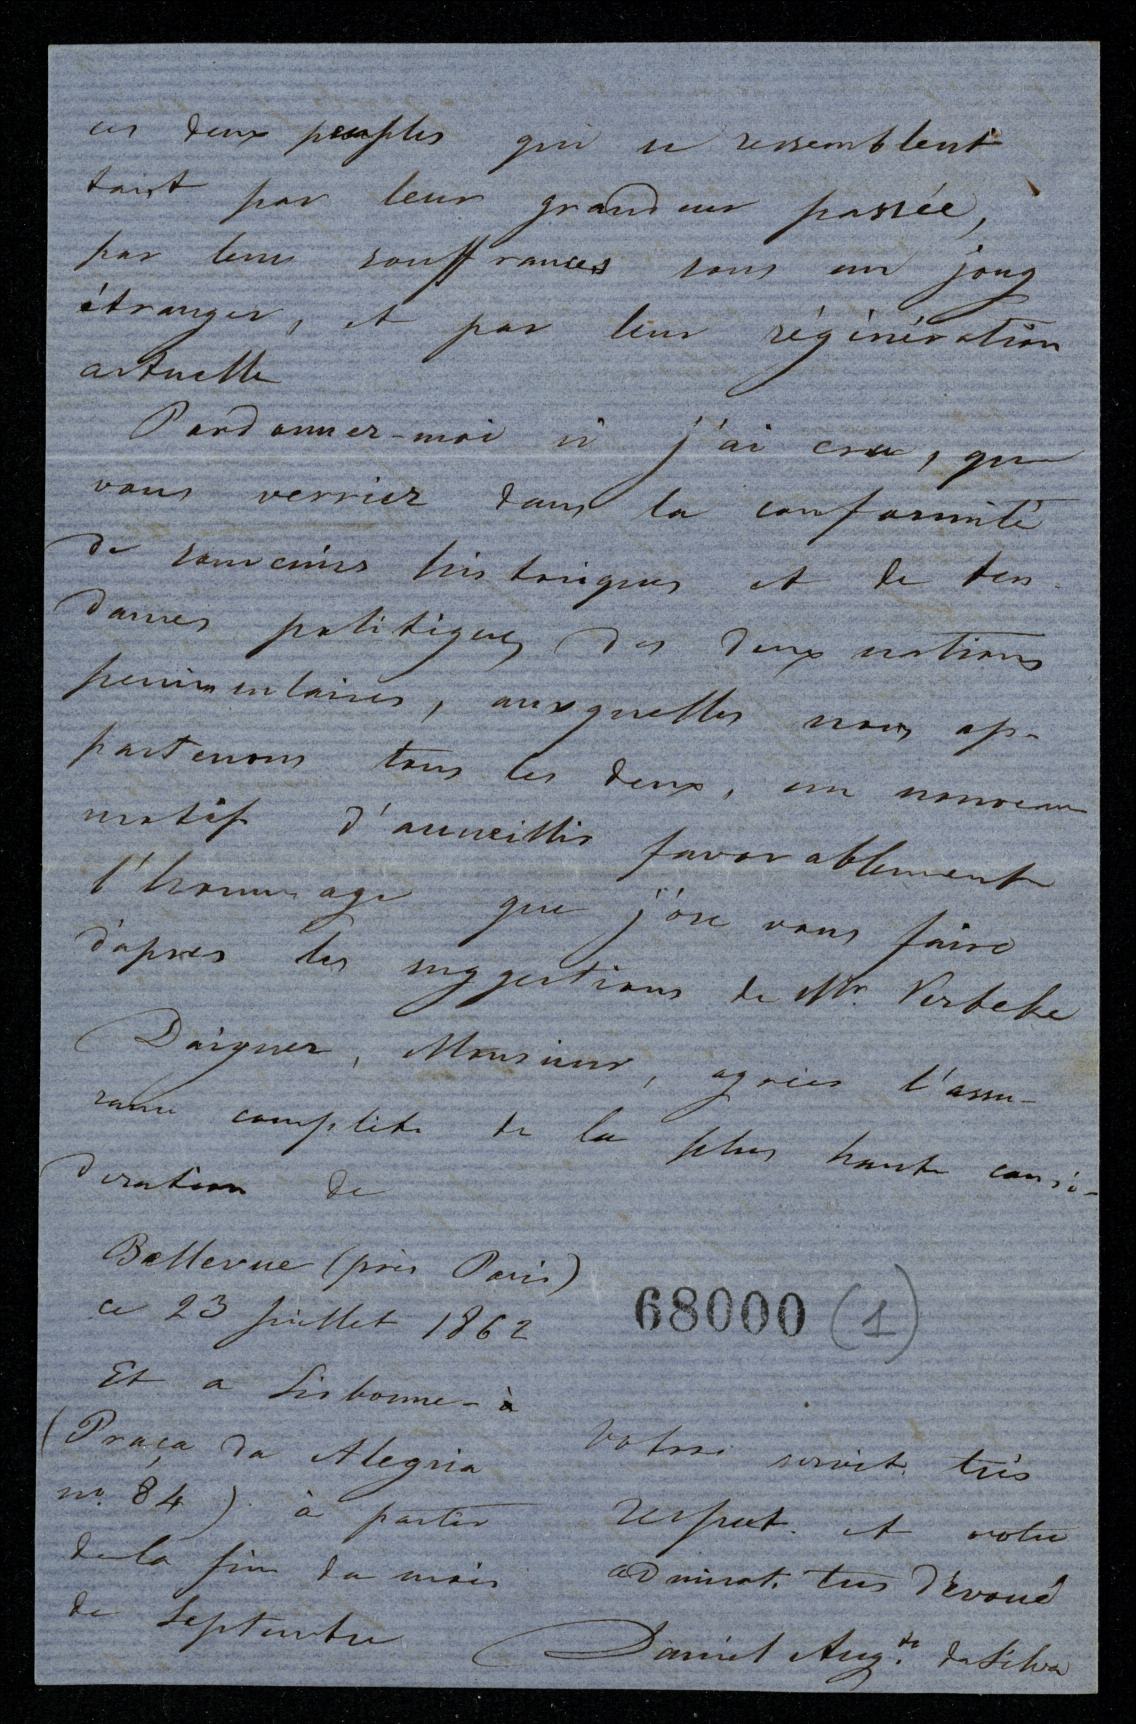 ces deux peuples qui se ressemblent
tant par leur grandeur passée,
par leurs souffrances sous un joug
étranger, et par leur régénération
actuelle
Pardonnez-moi si j'ai cru, que
vous verriez dans la conformité
de souvenirs historiques et de ten-
dances politiques des deux nations
peninsulaires, auxquelles nous ap-
partenons tous les deux, un nouveau
motif d'accueillir favorablement
l'hommage que j'ose vous faire
d'apres les suggestions de Mr. Verbeke
Daignez, Monsieur, agréer l'assu-
rance complète de la plus haute consi-
deration de
Bellevue (près Paris)
ce 23 Juillet 1862
68000 (1)
Et a Lisbonne - à
(Praça da Alegria
no. 84) à partir
de la fin du mois
de Septembre
Votre servit. très
respect. et votre
admirat. tres dévoué
Daniel Aug.to da Silva